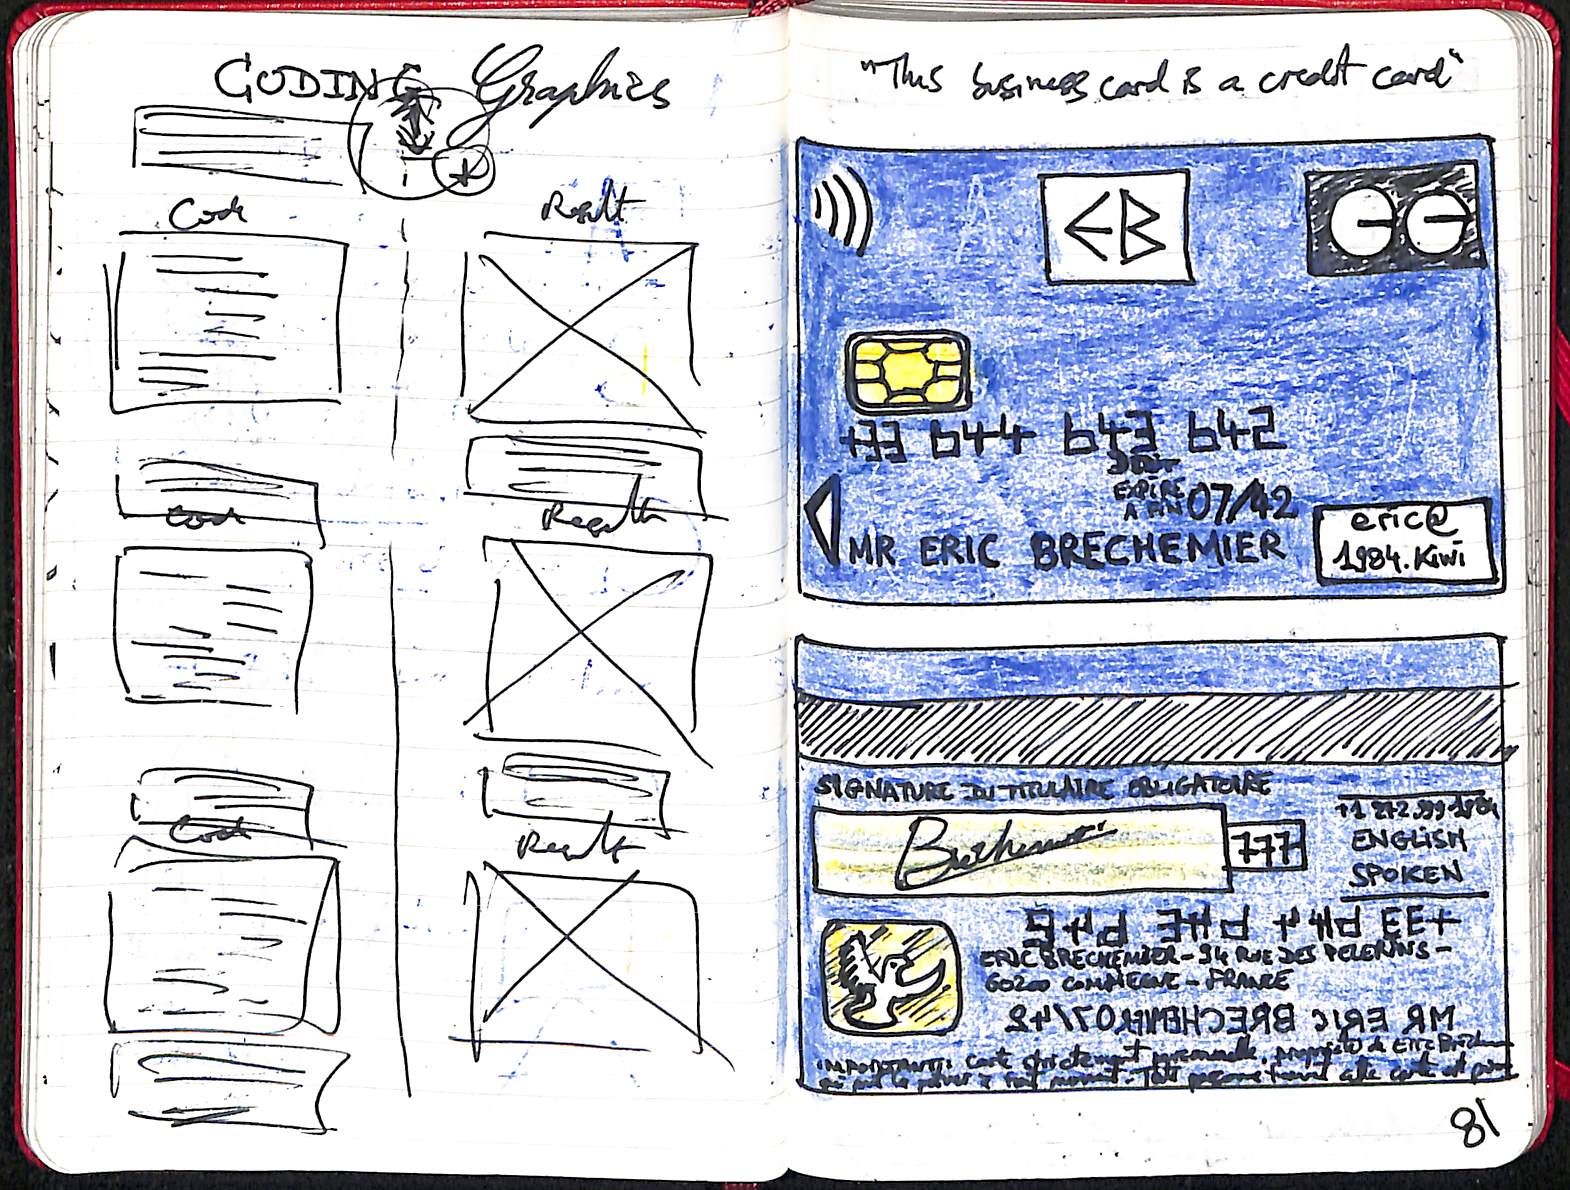 CODING Graphics
Code
Result
Code
Result
Code
Result
"This business card is a credit card"
EB
+33 644 643 642
EXPIRE
A FIN 07/42
MR ERIC BRECHEMIER
eric@
1984.Kiwi
SIGNATURE DU TITULAIRE OBLIGATOIRE
777
ENGLISH
SPOKEN
+33 644 643 642
ERIC BRECHEMIER - 94 RUE DES PELERINS -
60200 COMPIEGNE - FRANCE
MR ERIC BRECHEMIER 07/42
IMPORTANT: Carte strictement personnelle, propriété de Eric
qui peut la à tout moment. Toute personne trouvant cette carte est
81